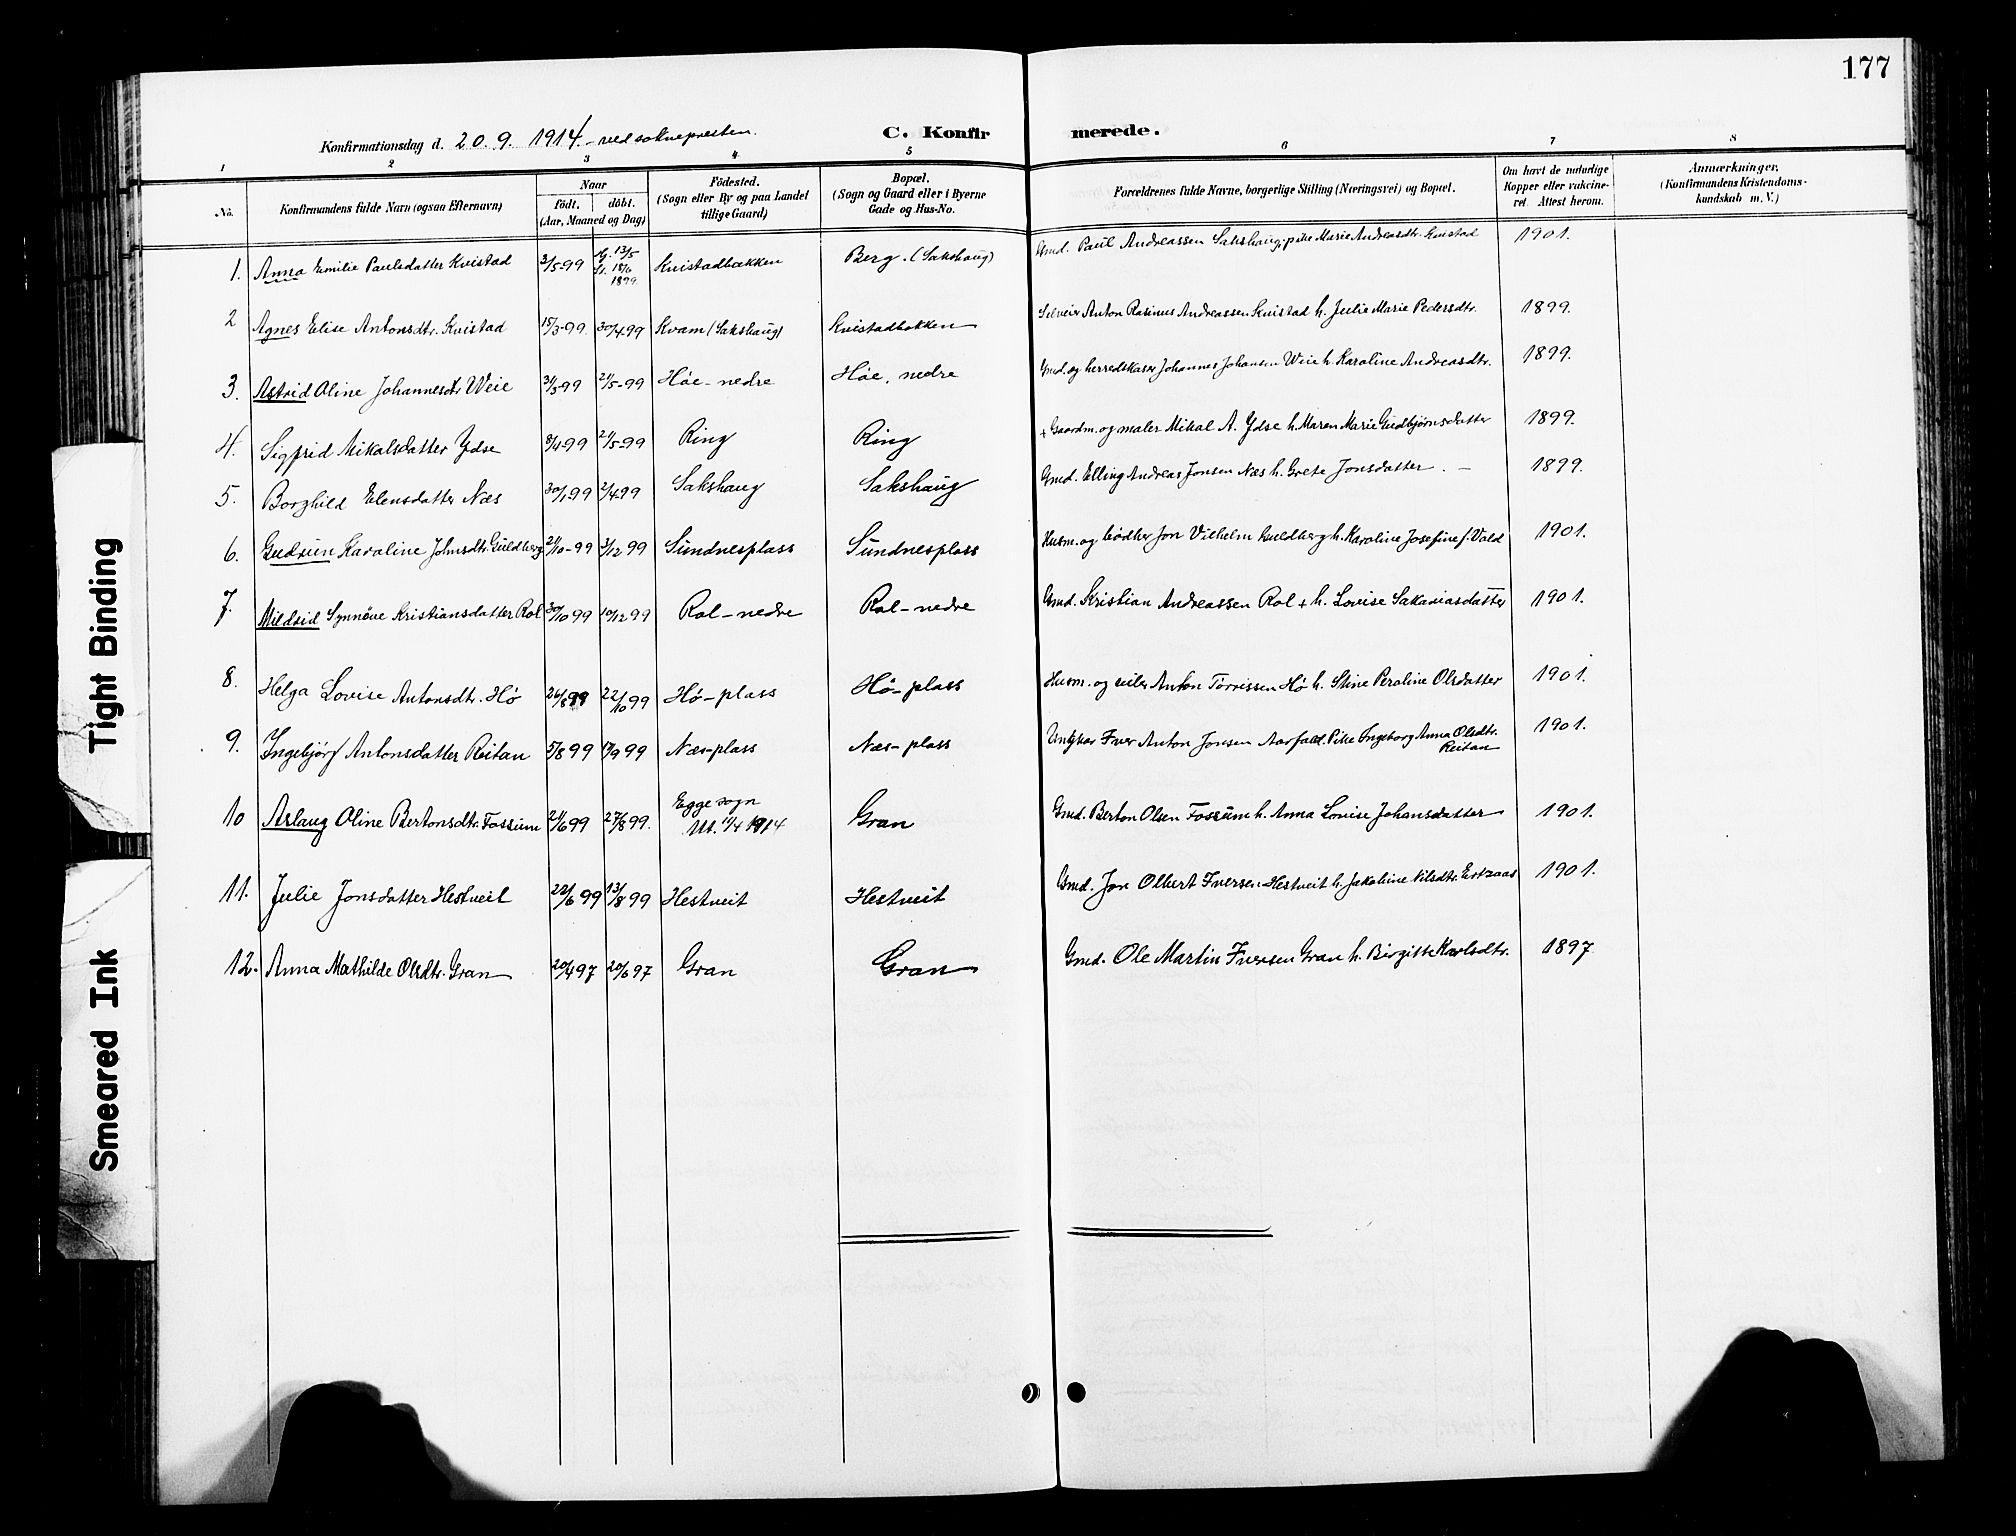 177
Konfirmationsdag d. 20. 9. 1914. - ved soknepresten.
C. Konfirmerede.
1 2 3 4 5 6 7 8
No.
Konfirmandens fulde Navn (ogsaa Efternavn)
Naar
Födt. döbt.
(Aar, Maaned og Dag)
Födested.
(Sogn eller By og paa Landet
tillige Gaard)
Bopæl.
(Sogn og Gaard eller i Byerne
Gade og Hus-No.
Forældrenes fulde Navne, borgerlige Stilling (Næringsvei) og Bopæl.
Om havt de naturlige
Kopper eller vakcine-
ret. Attest herom.
Anmærkninger.
(Konfirmandens Kristendoms-
kundskab m. V.)
1. Anna Emilie Paulsdatter Kvistad 3/5-99 13/5 18/6 1899 Kvistadbækken Berg. (Sakshaug) Gmd. Paul Andreassen Sakshaug, pike Marie Andreasdtr. Kvistad 1901.
2 Agnes Elise Antonsdtr. Kvistad 15/3-99. 30/4 99 Kvam (Sakshaug) Kvistadbakken Anton Rasinus Andreassen Kvistad h. Julie Marie Pedersdtr. 1899.
3. Astrid Oline Johannesdtr Weie 31/3-99 21/5-99 Høe-nedre Høe, nedre Gmd. og herredskaser Johannes Johansen Weie h. Karoline Andreasdtr. 1899.
4. Sigfrid Mikalsdatter Ydse 8/4-99 21/5-99 Ring Ring + Gaardm. og maler Mikal A. Ydse h. Maren Marie Gudbjørnsdatter 1899.
5. Borghild Elensdatter Næs 30/1 99 2/4 99 Sakshaug Sakshaug Gmd. Elling Andreas Jonsen Næs h. Grete Jonsdatter. - 1899.
6. Gudrun Karoline Johnsdtr. Guldberg 21/10-99 3/12 99 Sundnesplass Sundnesplass Husm. og bødker Jon Vilhelm Guldberg h. Karoline Josefine f. Vold 1901.
7. Mildrid Synnöve Kristiansdatter Rol 30/10 99 10/12 99 Rol-nedre Rol-nedre Gmd. Kristian Andreassen Rol + h. Lovise Sakariasdatter 1901.
8. Helga Lovise Antonsdtr. Hö 26/8 99 22/10 99 Hö-plass Hö-plass Husm. og Anton Torrissen Hö h. Stine Peroline Olsdatter 1901.
9. Ingebjörg Antonsdatter Reitan 5/8 99 17/9 99 Næs-plass Næs-plass Ungkar Iver Anton Jonsen Aarfald. Pike Ingeborg Anna Olsdtr. 1901.
Reitan
10 Aslaug Oline Bertonsdtr. Fossum 21/6 99 27/8 99. Egge sogn Gran Gmd. Berton Olsen Fossum h. Anna Lovise Johansdatter 1901.
Att. 11/4 1914
11. Julie Jonsdatter Hestveit 22/6 99 13/8 99 Hestveit Hestveit Gmd. Jon Olbert Iversen Hestveit h. Jakobine Nilsdtr. 1901.
12. Anna Mathilde Olsdtr. Gran 20/4 97 20/6 97 Gran Gran Gmd. Ole Martin Iversen Gran h. Birgitte Karlsdtr. 1897
Tight Binding
Smeared Ink